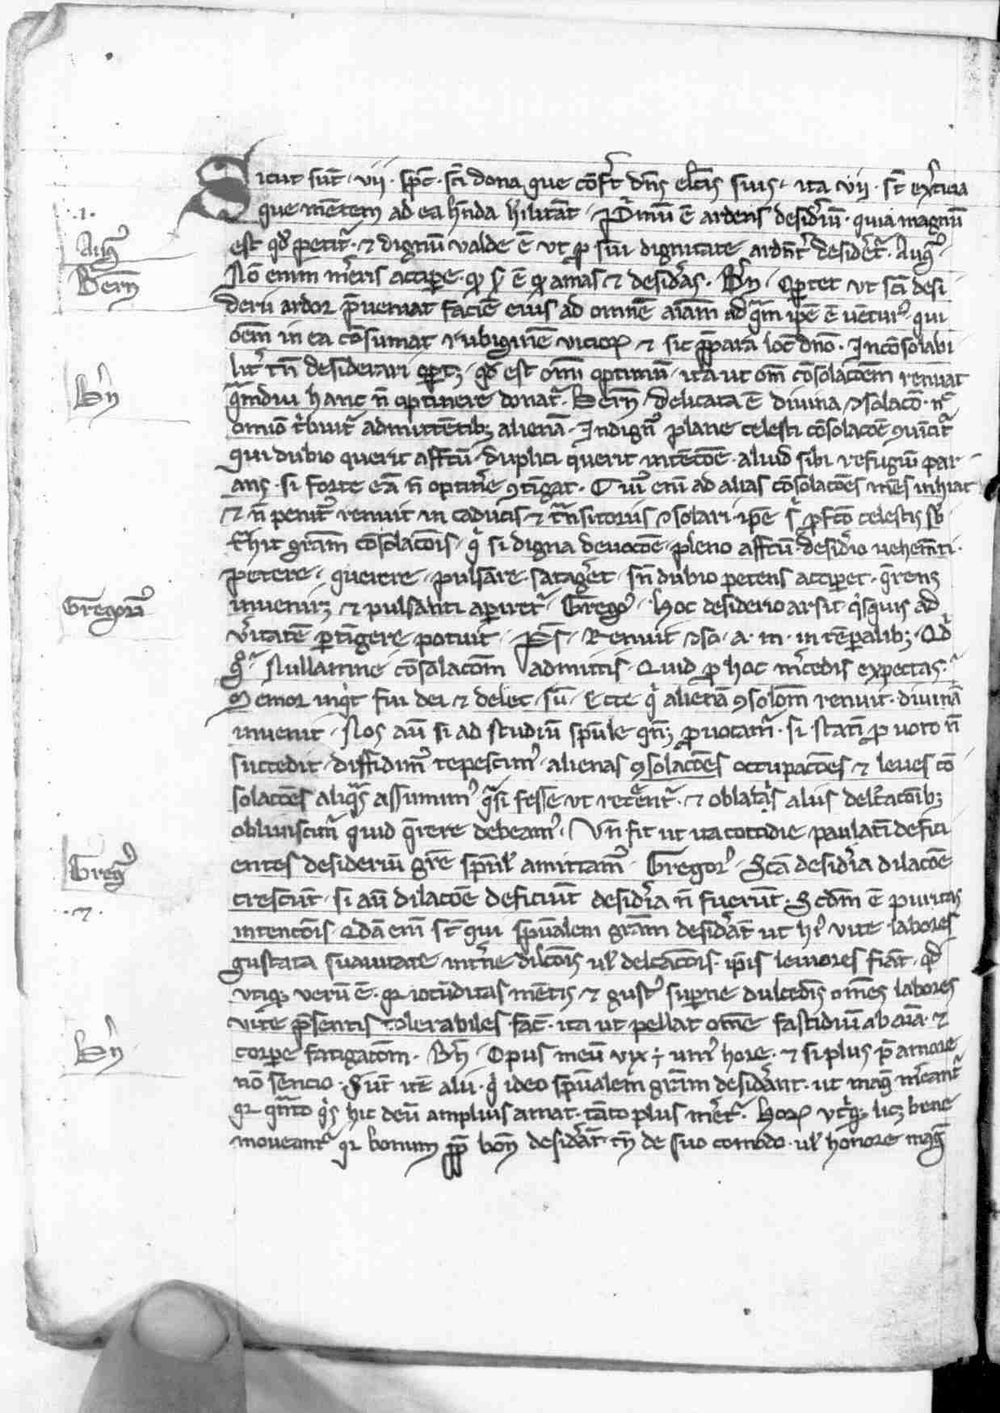 Sicut sūt · vii · sp̄c · sc̄i dona que cōf̄t dn̄s el̄c̄is suis · ita vii · st̄ ex̄cicia
que mētem ad ea h̄nda h̄ilitāt · P̄mū ē ardens desid̄iū · quia magnū
.1.
est qd̄ petit᷑ · ⁊ dignū valde ē ut ꝓ sui dignitate ardn̄t desidet᷑ · Aug᷑
Aug᷑
Nō enim m̄eris accipe · Bn̄ · Oportet ut sc̄i desi
Bern̄
derii ardor p̄veniat faciē eius ad omnē aīam ad qm̄ ip̄e ē vētur᷒ qui
oēm in ea cōsumat rubiginē vicioꝝ ⁊ sic p̄parā loc̄ dn̄o · Incōsolabi
lit᷑ tn̄ desiderari oportꝫ · qd̄ est om̄i optimū · ita ut om̄ cōsolacōem renuat
Bn̄
qm̄diu hanc n̄ optinere donat᷑ · Bern̄ · delicata ē divina ꝯsolacō · n̄
omīo t̄buit᷑ admittētibꝫ alienā · Indign᷒ plane celesti cōsolacōe
qui dubio querit affc̄tu · duplici querit intēcōe · aliud sibi refugiū par
ans · si forte eā n̄ optin̄e ꝯtīgat · Cui᷒ enī ad alias cōsolacōes mēs inhiat
⁊ n̄ penit᷒ renuit in caducis ⁊ t̄nsitoriis ꝯsolari · ip̄e s᷑ ꝓfc̄o celestis sb̄
t̄hit gr̄am cōsolacōis · q̄ si digna devocōe · pleno affc̄tu · desid̄io vehem̄ti ·
petere · querere · pulsare · sataḡet · sn̄ dubio petens accipet · q̄rens
inveniꝫ ⁊ pulsanti apiret᷑ · Grego᷑ · Hoc desiderio arsit q̄squis ad
Gregori᷒
v̄itatē p̄tīgere potuit · Ps̄ · Renuit ꝯso · a · m · in tēpalibꝫ · Qd̄
Nullamne cōsolacōm admittis · Quid ꝓ hoc m̄cedis expectas ·
Memor inq̄t fui dei ⁊ delec̄ · sū · Ecce q̄ alienā ꝯsolōm renuit · divinā
invenit · Nos aū si ad studiū sp̄uale ꝓvocam᷑ · si stati ꝓ voto n̄
succedit · diffidim᷒ tepescim᷒ · alienas ꝯsolacōes occupacōes ⁊ leves cō
solacōes aliq̄s assumim᷒ q̄si fesse ut ⁊ oblatis aliis delc̄acōibꝫ
obliviscim᷑ quid q̄rere debeam᷒ · Un̄ fit ut ita cottidie · paulati defici
entes desideriū gr̄e sp̄ual᷑ amittam᷒ · Gregor᷒ · Sc̄a desid̄ia dilacōe
Greg᷑
crescūt · si aū dilacōe deficiūt desid̄ia n̄ fuerūt · Scd̄m ē puritas
.2.
intencōis · Qdā enī st̄ qui sp̄ualem gr̄am desid̄āt ut hi᷒ vite labores
gustata suavitate int̄ne dilc̄ōis ul̄ delc̄acōis · ip̄is leviores fiāt · qd̄
utiqꝫ verū ē · qr iocūditas mētis ⁊ gust᷒ sup̄ne dulcedīs om̄es labores
vite p̄sentis tolerabiles fac̄ · ita ut pellat om̄e fastidiū ab aīa · ⁊
corpe fatigacōm · Bn̄ · Opus meū vix ē uni᷒ hore · ⁊ si plus p̄ amore
Bn̄
nō sencio · Sūt itē alii · q̄ ideo sp̄ualem gr̄am desid̄ant · ut mag᷒ m̄eant᷑
qr qm̄to q̄s hic deū amplius amat · tāto plus m̄et᷑ · Hoꝝ utiqꝫ licꝫ bene
moveant᷑ qr bonum ꝓp̄ bon̄ desid̄āt · tn̄ de suo comodo · ul̄ honore mag᷒